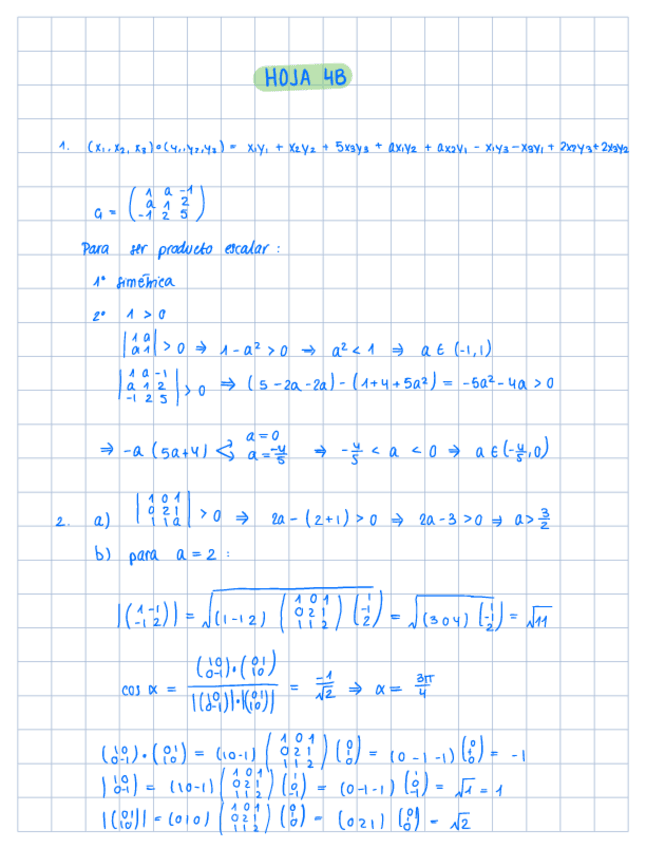 HOJA 4B
1. (x₁, x₂, x₃)∘(y₁, y₂, y₃) = x₁y₁ + x₂y₂ + 5x₃y₃ + ax₁y₂ + ax₂y₁ - x₁y₃ - x₃y₁ + 2x₂y₃ + 2x₃y₂
a = ( 1 a -1 ; a 1 2 ; -1 2 5 )
Para ser producto escalar :
1º simétrica
2º 1 > 0
| 1 a ; a 1 | > 0 ⇒ 1 - a² > 0 ⇒ a² < 1 ⇒ a ∈ (-1, 1)
| 1 a -1 ; a 1 2 ; -1 2 5 | > 0 ⇒ (5 - 2a - 2a) - (1 + 4 + 5a²) = -5a² - 4a > 0
⇒ -a (5a + 4) < a = 0 ; a = -4/5 ⇒ -4/5 < a < 0 ⇒ a ∈ (-4/5, 0)
2. a) | 1 0 1 ; 0 2 1 ; 1 1 a | > 0 ⇒ 2a - (2 + 1) > 0 ⇒ 2a - 3 > 0 ⇒ a > 3/2
b) para a = 2 :
|( 1 -1 ; -1 2 )| = √( (1 -1 2) ( 1 0 1 ; 0 2 1 ; 1 1 2 ) ( 1 ; -1 ; 2 ) ) = √( (3 0 4) ( 1 ; -1 ; 2 ) ) = √11
cos α = ( 1 0 ; 0 -1 ) · ( 0 1 ; 1 0 ) / |( 1 0 ; 0 -1 )| · |( 0 1 ; 1 0 )| = -1/√2 ⇒ α = 3π/4
( 1 0 ; 0 -1 ) · ( 0 1 ; 1 0 ) = (1 0 -1) ( 1 0 1 ; 0 2 1 ; 1 1 2 ) ( 0 ; 1 ; 0 ) = (0 -1 -1) ( 0 ; 1 ; 0 ) = -1
| 1 0 ; 0 -1 | = (1 0 -1) ( 1 0 1 ; 0 2 1 ; 1 1 2 ) ( 1 ; 0 ; -1 ) = (0 -1 -1) ( 1 ; 0 ; -1 ) = √1 = 1
|( 0 1 ; 1 0 )| = (0 1 0) ( 1 0 1 ; 0 2 1 ; 1 1 2 ) ( 0 ; 1 ; 0 ) = (0 2 1) ( 0 ; 1 ; 0 ) = √2